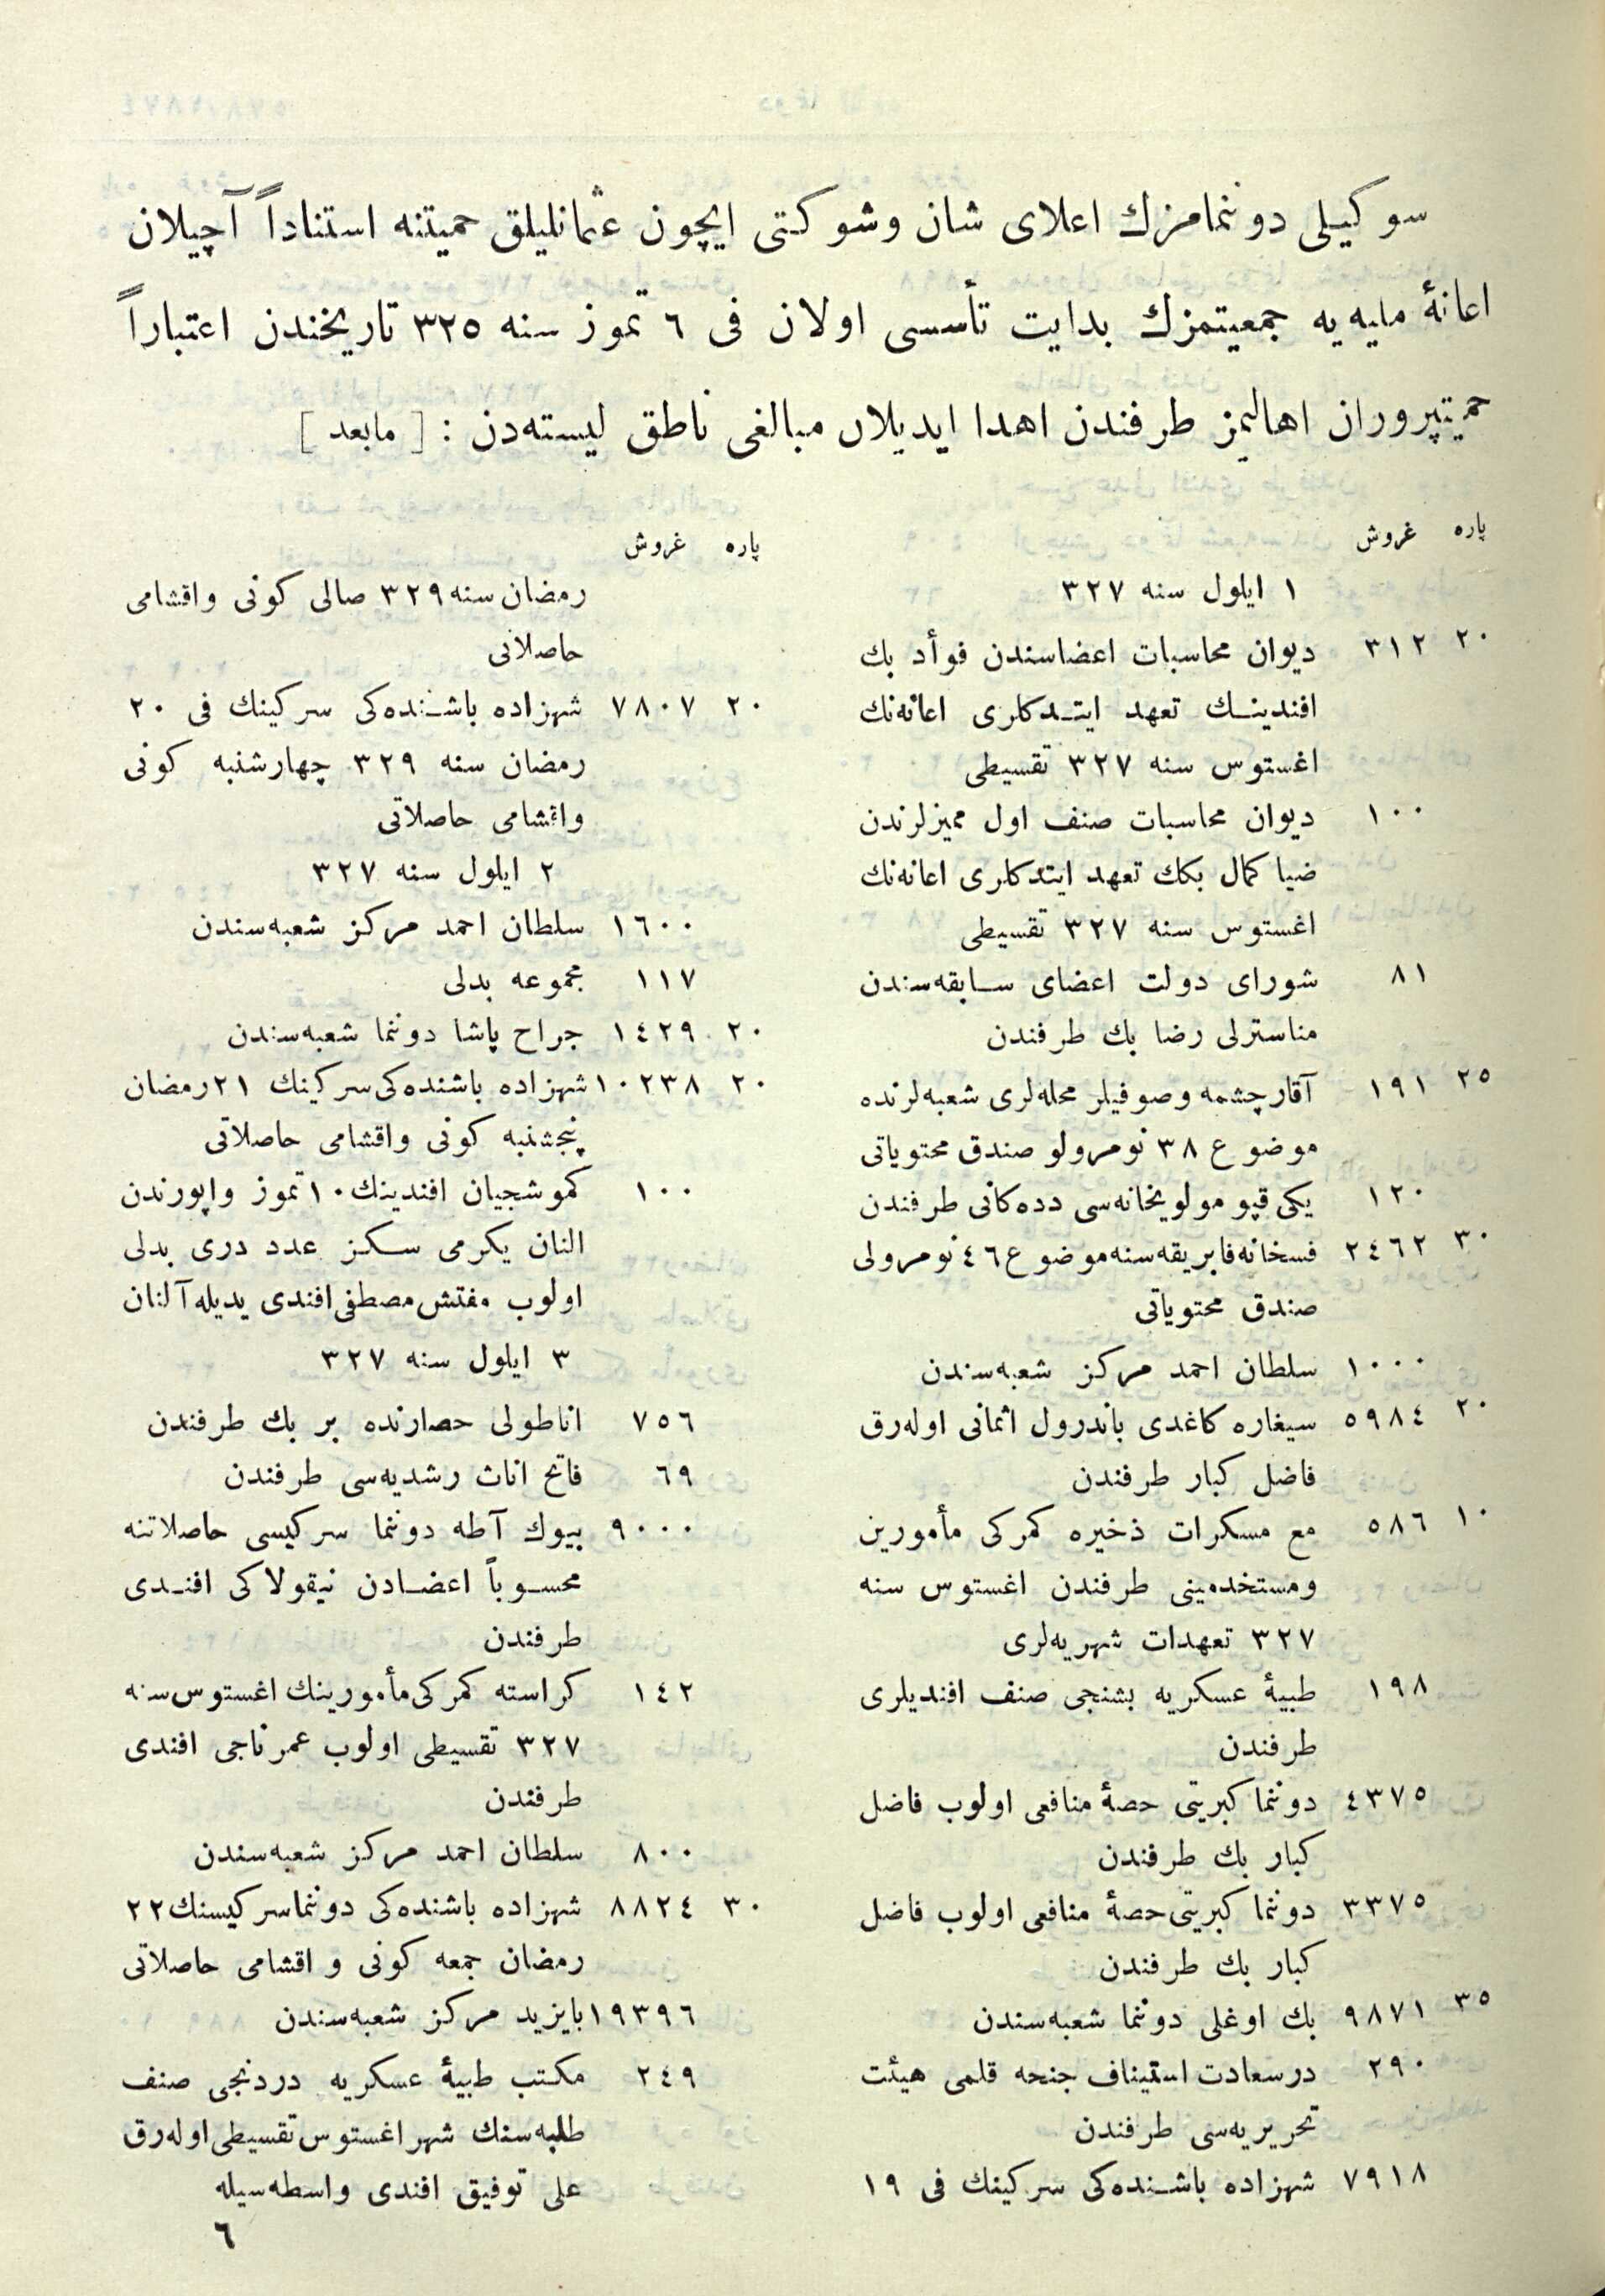 سوكيلى دوننمامزك اعلاى شان وشوكتى ايچون عثمانليلق حميتنه استناداً آچيلان
اعانۀ ماليه يه جمعيتمزك بدايت تأسسى اولان فى ٦ تموز سنه ٣٢٥ تاريخندن اعتباراً
حميتپروران اهاليمز طرفندن اهدا ايديلان مبالغى ناطق ليسته‌دن : [ مابعد ]
پاره غروش
١ ايلول سنه ٣٢٧
٢٠ ٣١٢ ديوان محاسبات اعضاسندن فوأد بك
افندينـك تعهد ايتـدكلرى اعانه‌نك
اغستوس سنه ٣٢٧ تقسيطى
١٠٠ ديوان محاسبات صنف اول مميزلرندن
ضيا كمال بكك تعهد ايتدكلرى اعانه‌نك
اغستوس سنه ٣٢٧ تقسيطى
٨١ شوراى دولت اعضاى سـابقه‌سندن
مناسترلى رضا بك طرفندن
٢٥ ١٩١ آقارچشمه وصوفيلر محله‌لرى شعبه‌لرنده
موضوع ٣٨ نومرولو صندق محتوياتى
١٢٠ يكى قپو مولويخانه‌سى دده‌كانى طرفندن
٣٠ ٢٤٦٢ فسخانه‌فابريقه‌سنه‌موضوع ٤٦ نومرولى
صندق محتوياتى
١٠٠٠ سلطان احمد مركز شعبه‌سندن
٢٠ ٥٩٨٤ سيغاره كاغدى باندرول اثمانى اوله‌رق
فاضل كبار طرفندن
١٠ ٥٨٦ مع مسكرات ذخيره كمركى مأمورين
ومستخدمينى طرفندن اغستوس سنه
٣٢٧ تعهدات شهريه‌لرى
١٩٨ طبيۀ عسكريه بشنجى صنف افنديلرى
طرفندن
٤٣٧٥ دوننما كبريتى حصۀ منافعى اولوب فاضل
كبار بك طرفندن
٣٣٧٥ دوننما كبريتى حصۀ منافعى اولوب فاضل
كبار بك طرفندن
٣٥ ٩٨٧١ بك اوغلى دوننما شعبه‌سندن
٢٩٠ درسعادت استيناف جنحه قلمى هيئت
تحريريه‌سى طرفندن
٧٩١٨ شهزاده باشـنده‌كى سركينك فى ١٩
پاره غروش
رمضان سنه ٣٢٩ صالى كونى واقشامى
حاصلاتى
٢٠ ٧٨٠٧ شهزاده باشـنده‌كى سركينك فى ٢٠
رمضان سنه ٣٢٩ چهارشنبه كونى
واقشامى حاصلاتى
٢ ايلول سنه ٣٢٧
١٦٠٠ سلطان احمد مركز شعبه‌سندن
١١٧ مجموعه بدلى
٢٠ ١٤٢٩ جراح پاشا دوننما شعبه‌سندن
٢٠ ١٠٢٣٨ شهزاده باشنده‌كى سركينك ٢١ رمضان
پنجشنبه كونى واقشامى حاصلاتى
١٠٠ كموشجيان افندينك ١٠ تموز واپورندن
النان يكرمى سـكـز عدد درى بدلى
اولوب مفتش مصطفى افندى يديله آلنان
٣ ايلول سنه ٣٢٧
٧٥٦ اناطولى حصارنده بر بك طرفندن
٦٩ فاتح اناث رشديه‌سى طرفندن
٩٠٠٠ بيوك آطه دوننما سركيسى حاصلاتنه
محسـوباً اعضـادن نيقولاكى افنـدى
طرفندن
١٤٢ كراسته كمركى مأمورينك اغستوس سنه
٣٢٧ تقسيطى اولوب عمر ناجى افندى
طرفندن
٨٠٠ سلطان احمد مركز شعبه‌سندن
٣٠ ٨٨٢٤ شهزاده باشنده‌كى دوننماسركيسنك ٢٢
رمضان جمعه كونى و اقشامى حاصلاتى
١٩٣٩٦ بايزيد مركز شعبه‌سندن
٢٤٩ مكتب طبيۀ عسكريه دردنجى صنف
طلبه‌سنك شهر اغستوس تقسيطى اوله‌رق
على توفيق افندى واسطه‌سيله
٦